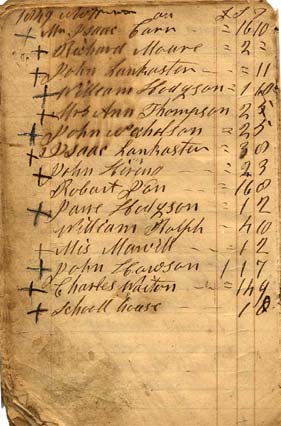 1849 an £ S D
+ Mr Isaac Carr = 16 10
+ Richard Moare = 2 =
+ John Lankaster = = 11
+ William Hodgson = 1 68
+ Mrs Ann Thompson 2 5
+ John Nicholson = 2 5
+ Isaac Lankaster = 3 8
+ John = 2 3
Robert = 16 8
+ Hodgson = 1 2
William Ralph 4 10
+ Mis = 1 2
+ John Hawson 1 1 7
+ Charles Walton = 14 9
+ Schooll house 1 8